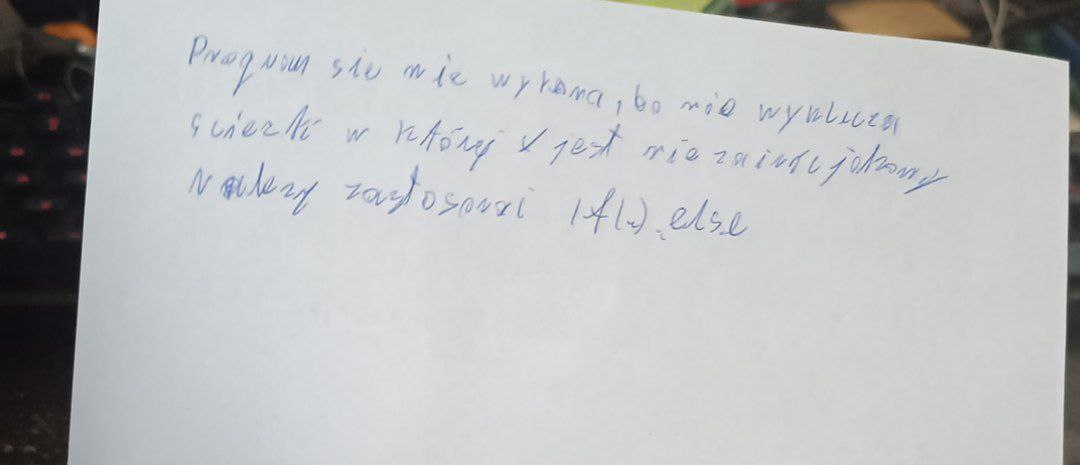 Program sie nie wykona, bo nie wyklucza
scieżki w której x jest nie zainicjolizowany
Należy zastosować if(..).else